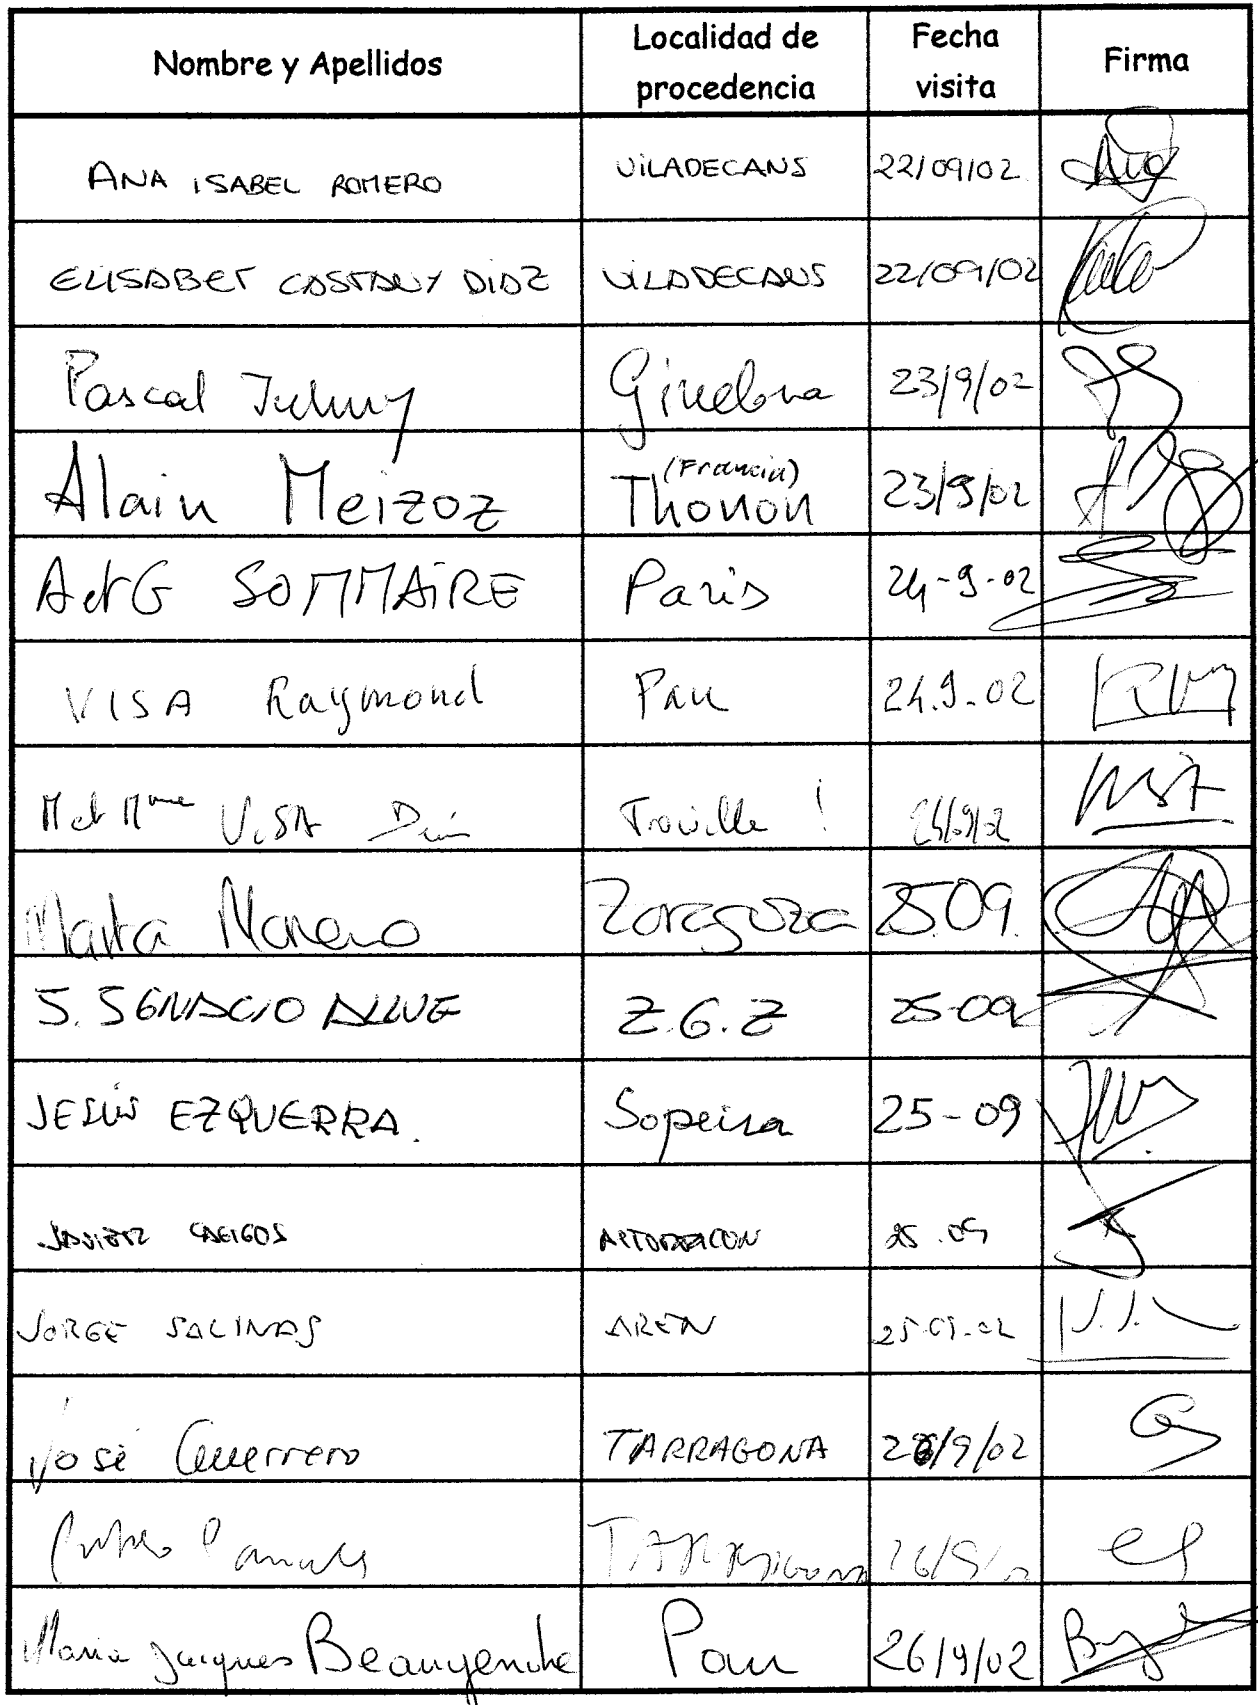 Nombre y Apellidos Localidad de procedencia Fecha visita Firma
ANA ISABEL ROMERO VILADECANS 22/09/02
ELISABET CASTANY DIAZ VILADECANS 22/09/02
Pascal Ginebra 23/9/02
Alain Meizoz (Francia) Thonon 23/9/02
A et G SOMMAIRE Paris 24-9-02
VISA Raymond Pau 24.9-02
M et Mme VISA Trouville ! 24/9/02
Marta Moreno Zaragoza 25.09.
J. IGNACIO ALLUE Z.G.Z 25-09
JESÚS EZQUERRA. Sopeira 25-09
JAVIER 25.09
JORGE SALINAS AREN 25-09-02
José Guerrero TARRAGONA 26/9/02
TARRAGONA 26/9/02
Maria Jacques Pau 26/9/02